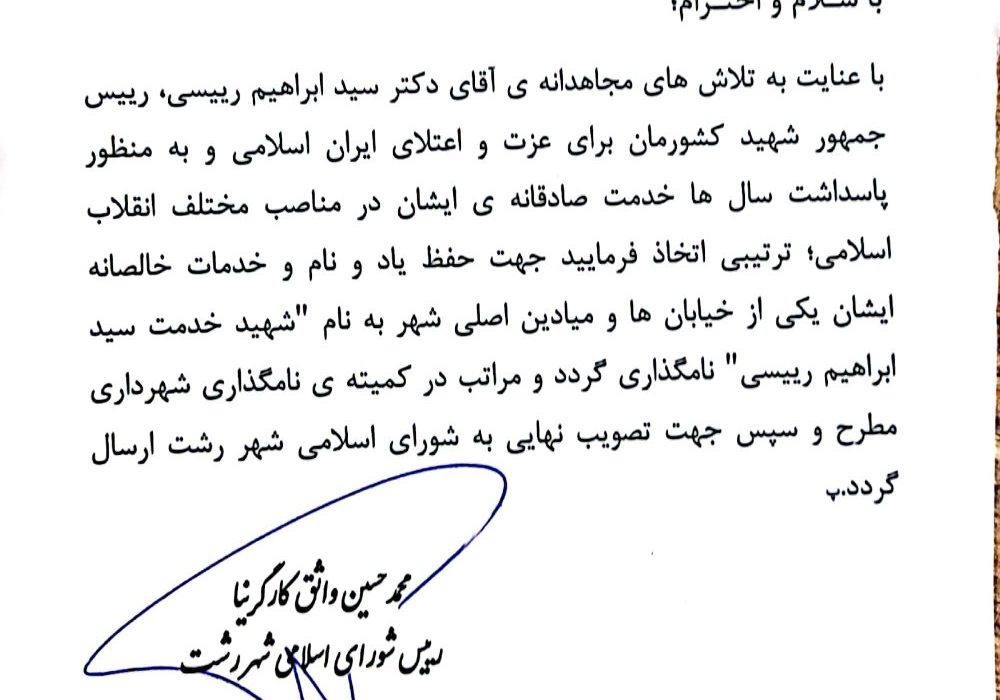 با سلام و احترام؛
با عنایت به تلاش های مجاهدانه ی آقای دکتر سید ابراهیم رییسی، رییس
جمهور شهید کشورمان برای عزت و اعتلای ایران اسلامی و به منظور
پاسداشت سال ها خدمت صادقانه ی ایشان در مناصب مختلف انقلاب
اسلامی؛ ترتیبی اتخاذ فرمایید جهت حفظ یاد و نام و خدمات خالصانه
ایشان یکی از خیابان ها و میادین اصلی شهر به نام "شهید خدمت سید
ابراهیم رییسی" نامگذاری گردد و مراتب در کمیته ی نامگذاری شهرداری
مطرح و سپس جهت تصویب نهایی به شورای اسلامی شهر رشت ارسال
گردد.پ
محمد حسین واثق کارگرنیا
رییس شورای اسلامی شهر رشت